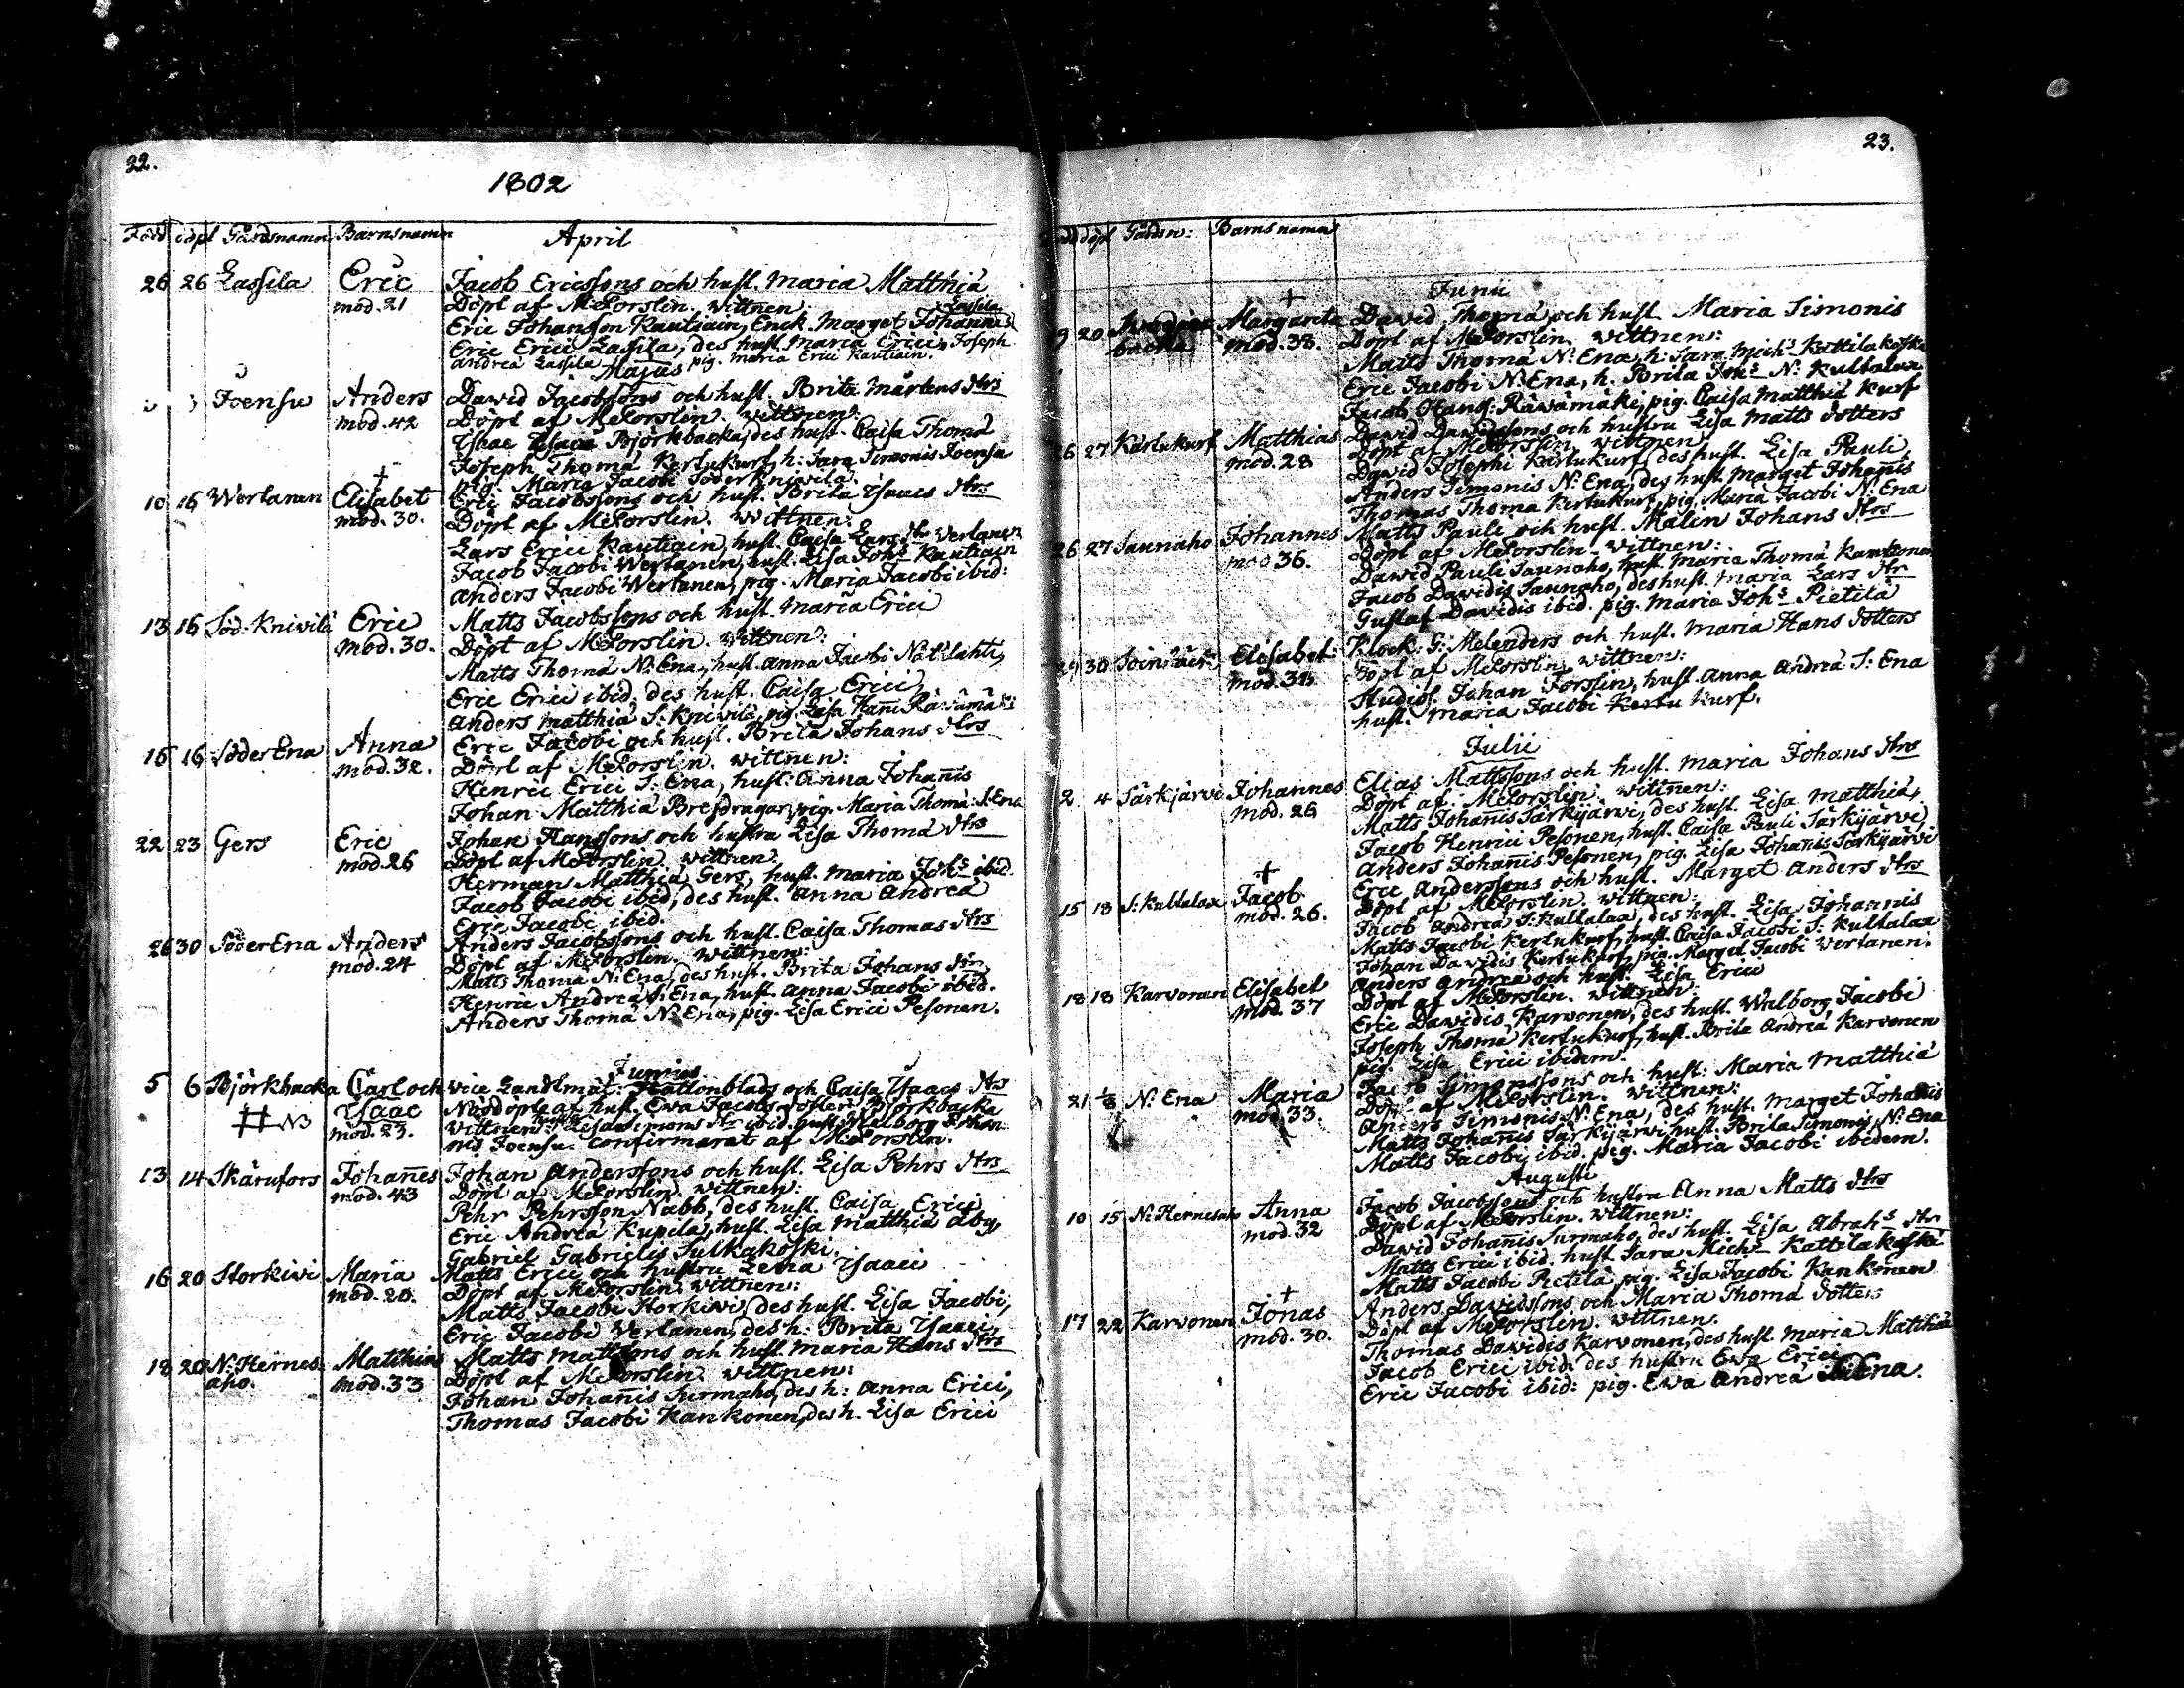 22.
1802
Född döpt Gårdsnamn Barnsnamn April
26 26 Lassila Eric Jacob Ericssons och hust. Maria Matthiä
mod. 21 Döpt af McForslin. wittnen:
Lassila
Eric Johansson Kautiain, Enck. Marget Johannis
Eric Erici Lassila, des hust Maria Erici, Joseph
Andreä Lassila pig. Maria Erici Kautiain.
Majus
Joensu Anders David Jacobssons och hust. Brita Mårtens dtrs
mod. 42 Döpt af McForslin. wittnen:
Ysaac Ysaca Björkbacka, des hust. Caisa Thomä
Joseph Thomä Kertukurf, h: Sara Simonis Joensu
pig. Maria Jacobi Söderkniwilä.
10 16 Wertanen Elisabet Eric Jacobssons och hust. Brita Ysaacs dtrs
mod. 30. Döpt af McForslin. wittnen:
Lars Erici Kautiain, hust. Caisa Lars dtr Wertanen
Jacob Jacobi Wertanen, hust. Lisa Johs Kautiain
Anders Jacobi Wertanen, pig. Maria Jacobi ibid:
13 16 Söd: Kniwilä Eric Matts Jacobssons och hust. Maria Erici
mod. 30. Döpt af McForslin. wittnen:
Matts Thomä N: Ena, hust. Anna Jacobi
Eric Erici ibid. des hust. Caisa Erici,
Anders Matthiä S: Kniwilä, pig. Lisa Räwämäki
15 16 Söder Ena Anna Eric Jacobi och hust. Brita Johans dtrs
mod. 32. Döpt af McForslin. wittnen:
Henric Erici S: Ena, hust: Anna Johanis
Johan Matthiä Bresdragar, pig. Maria Thomä S: Ena
22 23 Gers Eric Johan Hanssons och hustru Lisa Thomä dtrs
mod. 26 Döpt af McForslin. wittnen:
Herman Matthiä Gers, hust. Maria Johs ibid.
Jacob Jacobi ibid, des hust. Anna Andreä
Eric Jacobi ibid.
26 30 Söder Ena Anders Anders Jacobssons och hust. Caisa Thomas dtrs
mod. 24 Döpt af McForslin. wittnen:
Matts Thomä N: Ena, des hust. Brita Johans dtr
Henric Andreä S: Ena, hust. Anna Jacobi ibid.
Anders Thomä N: Ena, pig. Lisa Erici Pesonen.
Junius
5 6 Björkbacka Carl och Vice Landtmät: och Caisa Ysaacs dtrs
NB Ysaac Nöddöpte af hust. Eva Jacobs dotter Björkbacka
mod. 23. Wittnen: Lisa Simons dtr ibid. hust. Walborg Johan
nis Joensu. Confirmerat af McForslin.
13 14 Skärufors Johañes Johan Anderssons och hust. Lisa Pehrs dtrs
mod. 43 Döpt af McForslin. wittnen:
Pehr Pehrsson Nabb, des hust. Caisa Erici
Eric Andreä Kupila, hust. Lisa Matthiä Åby,
Gabriel Gabrielis Julkakoski.
16 20 Storkiwi Maria Matts Erici och hustru Lena Ysaaci
mod. 20. Döpt af McForslin. wittnen:
Matts Jacobi Storkiwi, des hust. Lisa Jacobi,
Eric Jacobi Wertanen, des h: Brita Ysaaci,
18 20 N: Hernes- Matthias Matts Mattsons och hust. Maria Hans dtrs
aho. mod. 33 Döpt af McForslin. wittnen:
Johan Johañis Surmaho, des h: Anna Erici,
Thomas Jacobi Kankonen, des h. Lisa Erici
23.
döpt Gårdsn: Barns namn
Junii
9 20 Margareta David Thomä och hust. Maria Simonis
backa mod. 38. Döpt af McForslin. wittnen:
Matts Thomä N: Ena, h: Sara Michs Kattilakoski
Eric Jacobi N: Ena, h. Brita Johs N: Kultalax
Jacob Hans: Räwämäki, pig. Caisa Matthiä Kurf
26 27 Kärtukurf Matthias David Davidssons och hustru Lisa Matts dotters
mod. 28 Döpt af McForslin. wittnen:
David Josephi Kärtukurf, des hust. Lisa Pauli,
Anders Simonis N: Ena, des hust Marget Johanis
Thomas Thomä Kertukurf, pig. Maria Jacobi N: Ena
26 27 Saunaho Johannes Matts Pauli och hust. Malin Johans dtrs
mod 36. Döpt af McForslin. wittnen:
David Pauli Saunaho, hust. Maria Thomä Kankonen
Jacob Davidis Saunaho, des hust. Maria Lars dtr
Gustaf Davidis ibid. pig. Maria Johs Pietilä
29 30 Elisabet Klock: G: Melenders och hust. Maria Hans dotters
Döpt af McForslin. wittnen:
Studios. Johan Forslin, hust. Anna Andreä S: Ena
hust. Maria Jacobi Kertu Kurf.
Julii
2 4 Särkjärvi Johannes Elias Mattssons och hust. Maria Johans dtrs
mod. 26 Döpt af McForslin. wittnen:
Matts Johanis Särkijärwi, des hust. Lisa Matthiä,
Jacob Henrici Pesonen, hust. Caisa Pauli Särkijärvi,
Anders Johañis Pesonen, pig. Lisa Johanis Särkijärvi
15 18 S: Kultalax Jacob Eric Anderssons och hust. Marget Anders dtrs
mod. 26. Döpt af McForslin. wittnen:
Jacob Andreä S: Kultalax, des hust. Lisa Johannis
Matts Jacobi Kertukurf, hust. Caisa Jacobi S: Kultalax
Johan Davidis Kertukurf, pig. Marget Jacobi Wertanen.
18 18 Karvonen Elisabet Anders Andreä och hust. Lisa Erici
mod. 37 Döpt af McForslin. wittnen:
Eric Davidis Karvonen, des hust. Walborg Jacobi
Joseph Thomä Kertukurf, hust. Brita Andreä Karvonen
pig. Lisa Erici ibidem.
21 1/8 N: Ena Maria Jacob Simonssons och hust: Maria Matthiä
mod. 33. Döpt af McForslin. wittnen:
Anders Simonis N: Ena, des hust. Marget Johanis
Matts Johanis Särkijärwi hust. Brita Simonis N: Ena
Matts Jacobi ibid. pig. Maria Jacobi ibidem.
Augusti
10 15 N: Hernesaho Anna Jacob Jacobssons och hustru Anna Matts dtrs
mod. 32 Döpt af McForslin. wittnen:
David Johanis Surmaho, des hust. Lisa Abrahs dtr
Matts Erici ibid. hust. Sara Michs Kattilakoski
Matts Jacobi Pietilä pig. Lisa Jacobi Kankonen
17 22 Karvonen Jonas Anders Davidssons och Maria Thomä dotters
mod. 30. Döpt af McForslin. wittnen.
Thomas Davidis Karvonen, des hust. Maria Matthiä
Jacob Erici ibid. des hustru Eva Erici
Eric Jacobi ibid: pig. Eva Andreä Ena.